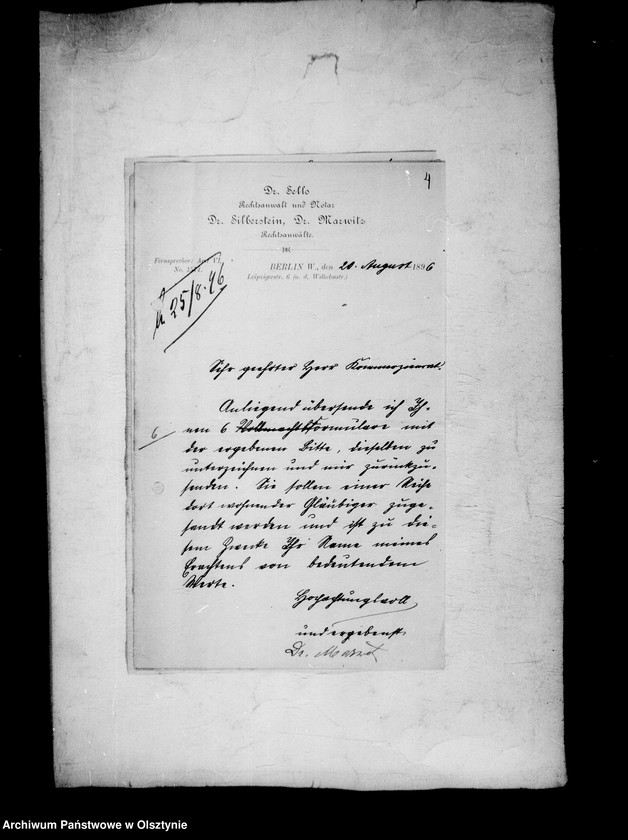 4
Dr. Sello
Rechtsanwalt und Notar
Dr. Silberstein, Dr. Marwitz
Rechtsanwälte.
Fernsprecher: Amt VI,
No.
BERLIN W., den 20. August 1896
Leipzigerstr. 6 (a. d. Wilhelmstr.)
25/8. 96
Sehr geehrter Herr Kommerzienrat.
Anliegend übersende ich Ih-
nen 6 Vollmachtsformulare mit
6
der ergebenen Bitte, dieselben zu
unterzeichnen und mir zurückzu-
senden. Sie sollen einer Reihe
dort wohnender Gläubiger zuge-
sandt werden und ist zu die-
sem Zwecke Ihr Name meines
Erachtens von bedeutendem
Werte.
Hochachtungsvoll
und ergebenst
Dr. Marwitz
Archiwum Państwowe w Olsztynie